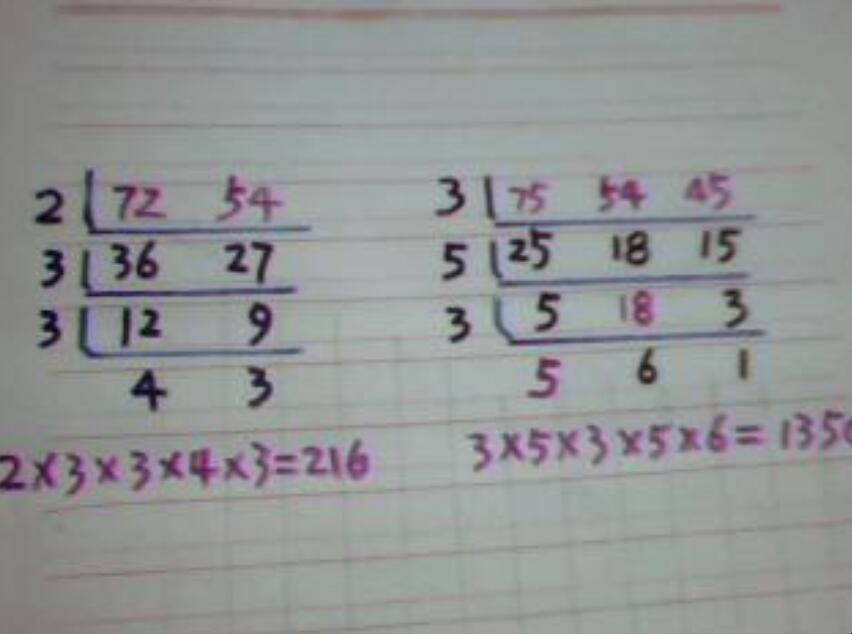 2 72 54
3 36 27
3 12 9
4 3
2×3×3×4×3=216
3 75 54 45
5 25 18 15
3 5 18 3
5 6 1
3×5×3×5×6=1350